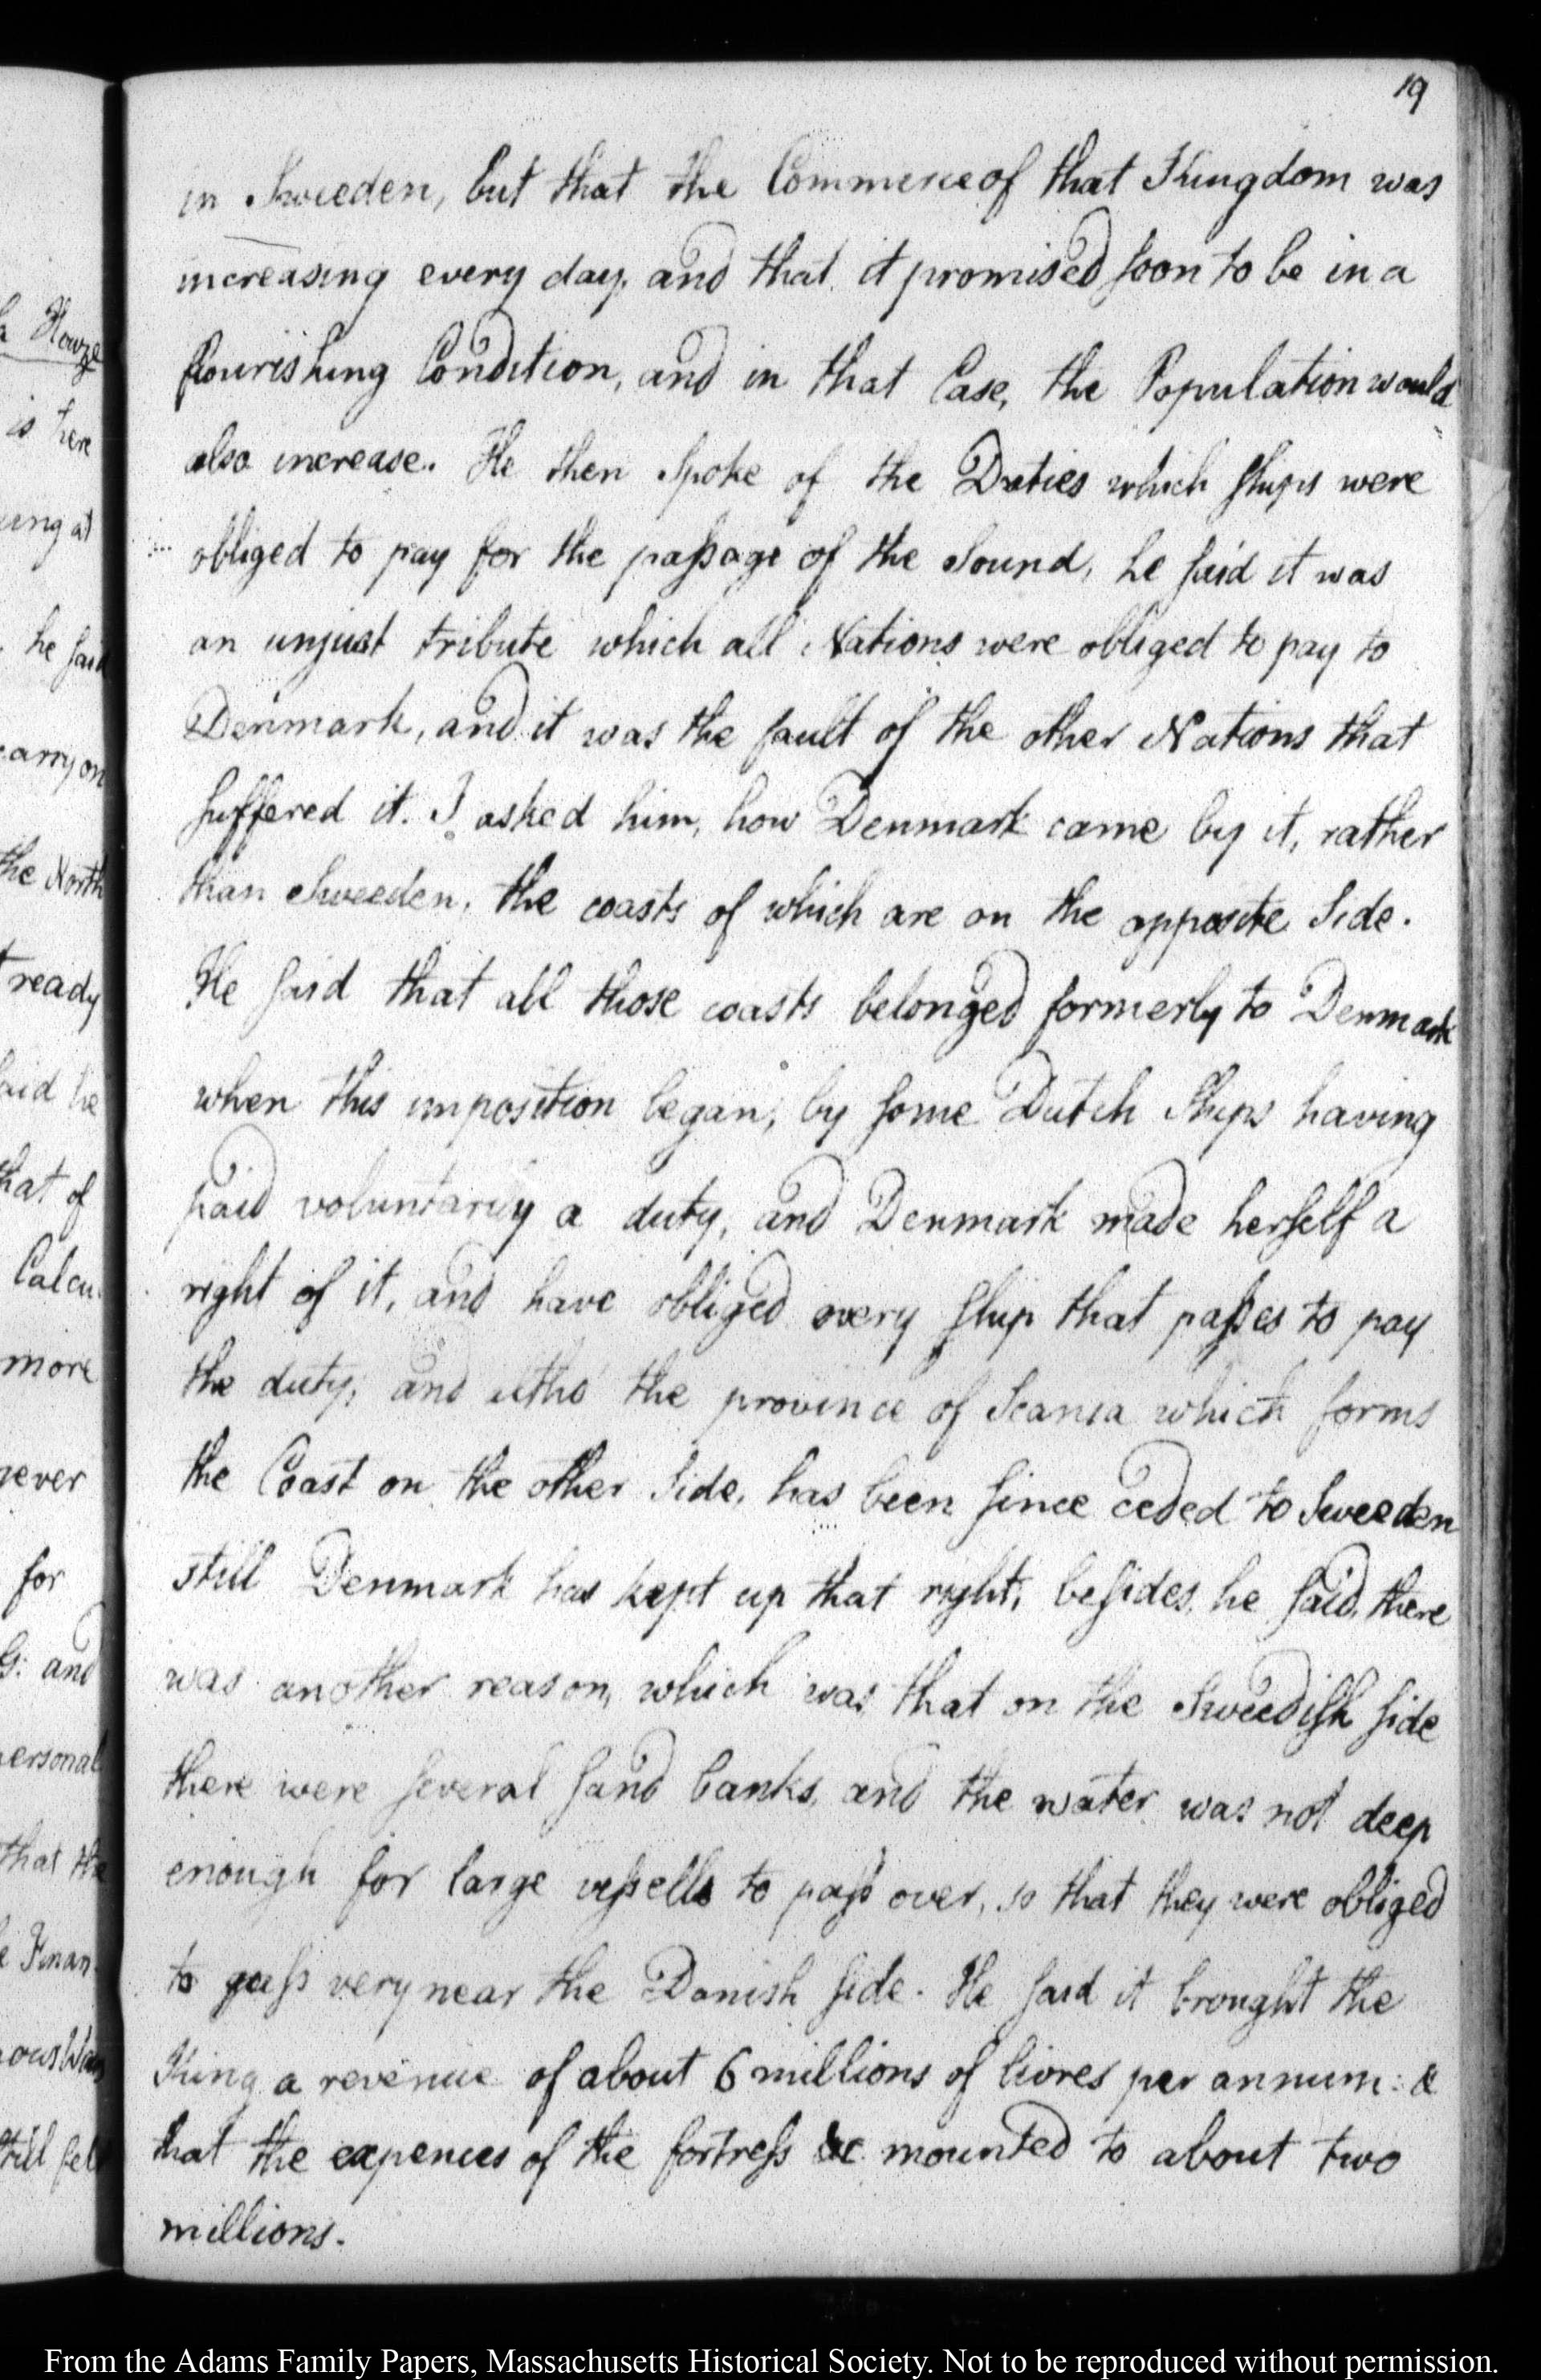 19
in Sweeden, but that the Commerce of that Kingdom was
increasing every day. and that it promised soon to be in a
flourishing Condition, and in that Case, the Population would
also increase. He then spoke of the Duties which ships were
obliged to pay for the passage of the Sound, he said it was
an unjust tribute which all Nations were obliged to pay to
Denmark, and it was the fault of the other Nations that
suffered it. I asked him, how Denmark came by it, rather
than Sweeden, the coasts of which are on the opposite Side.
He said that all those coasts belonged formerly to Denmark
when this imposition began, by some Dutch Ships having
paid voluntarily a duty, and Denmark made herself a
right of it, and have obliged every ship that passes to pay
the duty; and altho' the province of Scania which forms
the Coast on the other Side, has been since ceded to Sweeden
still Denmark has kept up that right, besides, he said, there
was another reason, which was that on the Sweedish side
there were several sand banks, and the water was not deep
enough for large vessells to pass over, so that they were obliged
to pass very near the Danish side. He said it brought the
King a revenue of about 6 millions of livres per annum: &
that the expences of the fortress &c mounted to about two
millions.
Howze
is here
ing at
he said
carry on
the North
ready
said he
that of
Calcu-
more
never
for
G: and
personal
that the
Finan-
From the Adams Family Papers, Massachusetts Historical Society. Not to be reproduced without permission.